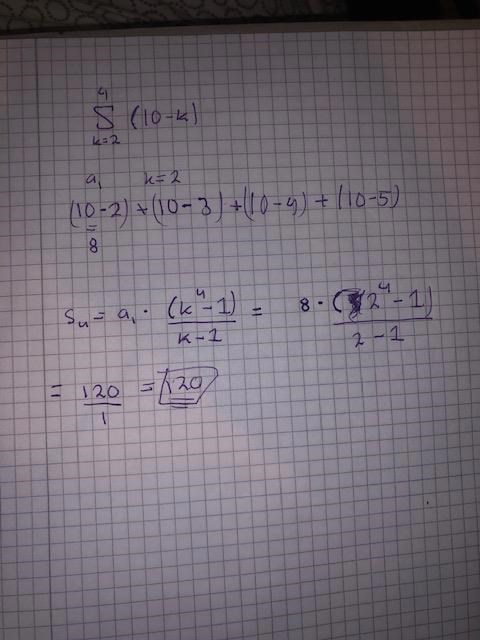 4
Σ (10-k)
k=2
a₁ k=2
(10-2)+(10-3)+(10-4)+(10-5)
=
8
S₄ = a₁ · (k⁴-1)/(k-1) = 8 · (2⁴-1)/(2-1)
= 120/1 = 120